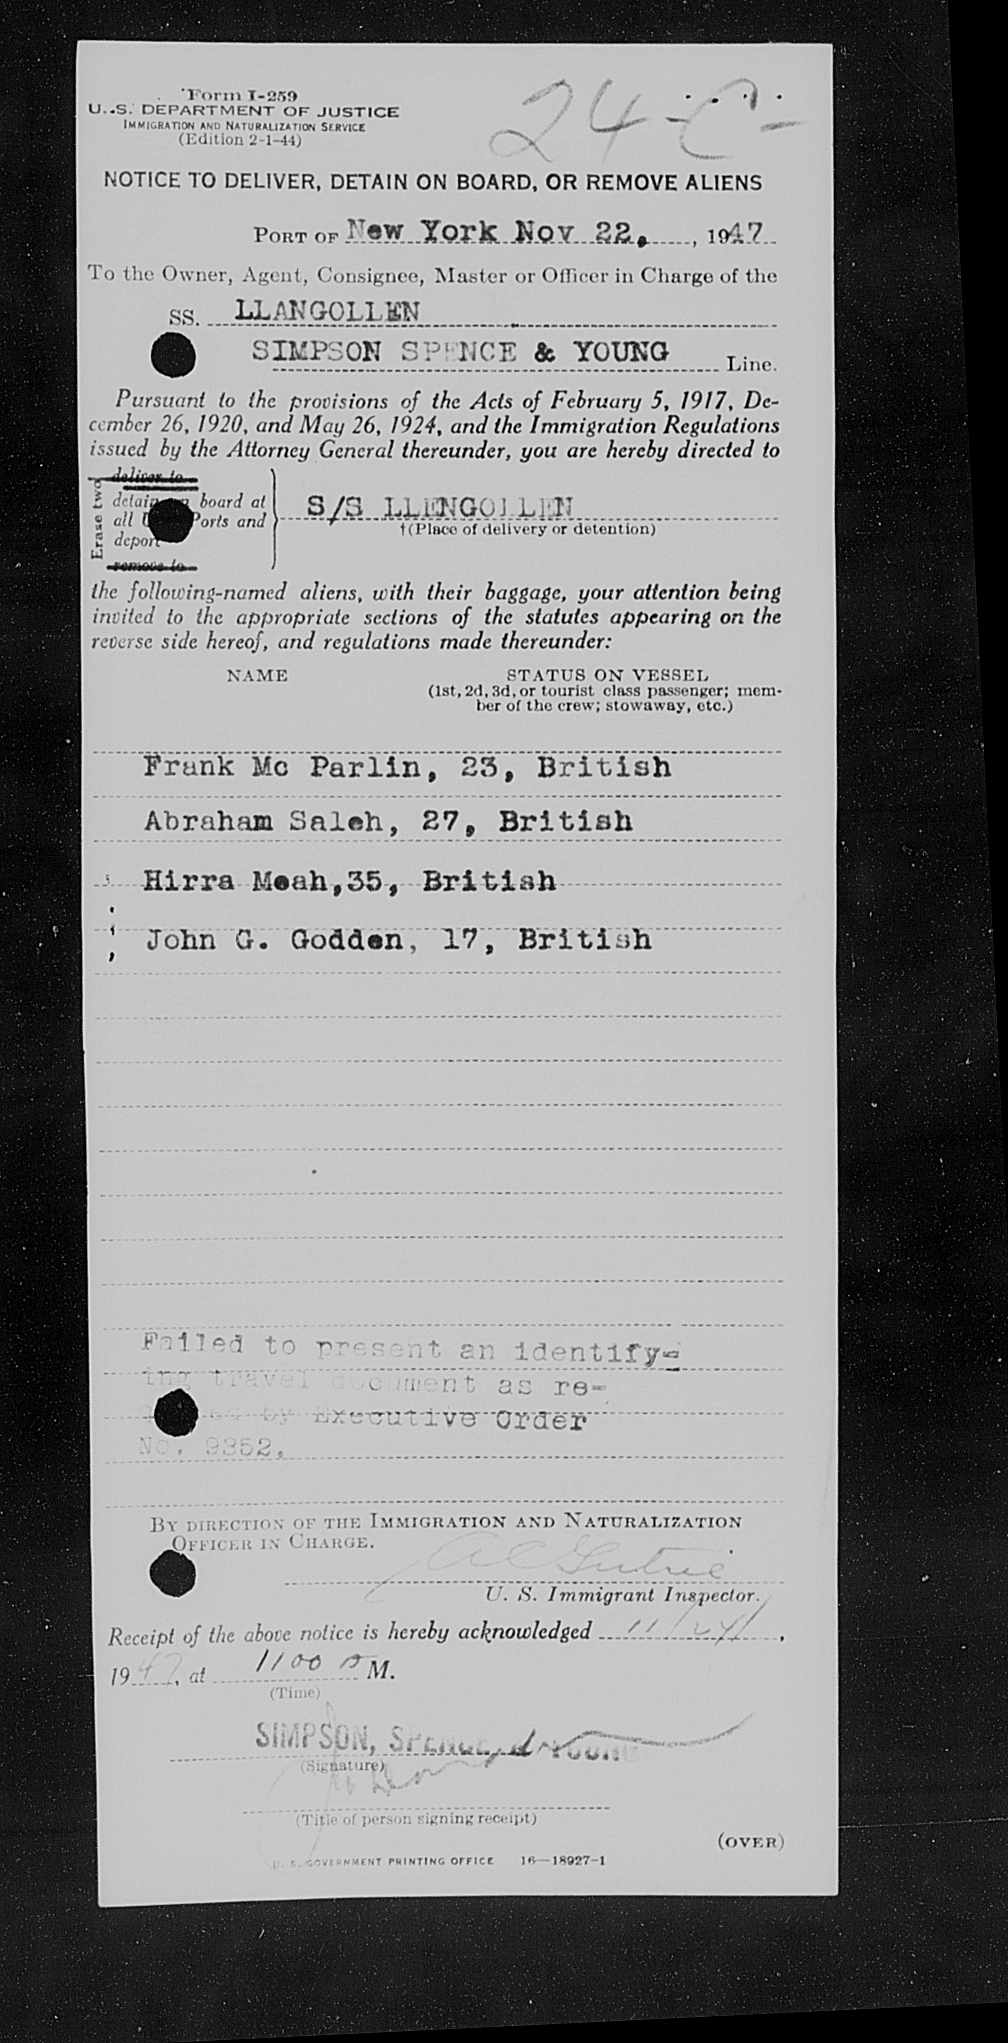 24-C-
Form I-259
U. S. DEPARTMENT OF JUSTICE
IMMIGRATION AND NATURALIZATION SERVICE
(Edition 2-1-44)
NOTICE TO DELIVER, DETAIN ON BOARD, OR REMOVE ALIENS
PORT OF New York Nov 22, , 1947
To the Owner, Agent, Consignee, Master or Officer in Charge of the
SS. LLANGOLLEN
SIMPSON SPENCE & YOUNG Line.
Pursuant to the provisions of the Acts of February 5, 1917, De-
cember 26, 1920, and May 26, 1924, and the Immigration Regulations
issued by the Attorney General thereunder, you are hereby directed to
Erase two
deliver to
detain on board at
all Ports and
deport
remove to
S/S LLENGOLLEN
†(Place of delivery or detention)
the following-named aliens, with their baggage, your attention being
invited to the appropriate sections of the statutes appearing on the
reverse side hereof, and regulations made thereunder:
NAME STATUS ON VESSEL
(1st, 2d, 3d, or tourist class passenger; mem-
ber of the crew; stowaway, etc.)
Frank Mc Parlin, 23, British
Abraham Saleh, 27, British
Hirra Meah,35, British
John G. Godden, 17, British
Failed to present an identify-
ing travel document as re-
by Executive Order
No. 9352.
BY DIRECTION OF THE IMMIGRATION AND NATURALIZATION
OFFICER IN CHARGE.
U. S. Immigrant Inspector.
Receipt of the above notice is hereby acknowledged 11/24/ ,
1947, at 1100 A M.
(Time)
SIMPSON, SPENCE, & YOUNG
(Signature)
(Title of person signing receipt)
(OVER)
U. S. GOVERNMENT PRINTING OFFICE 16—18927-1